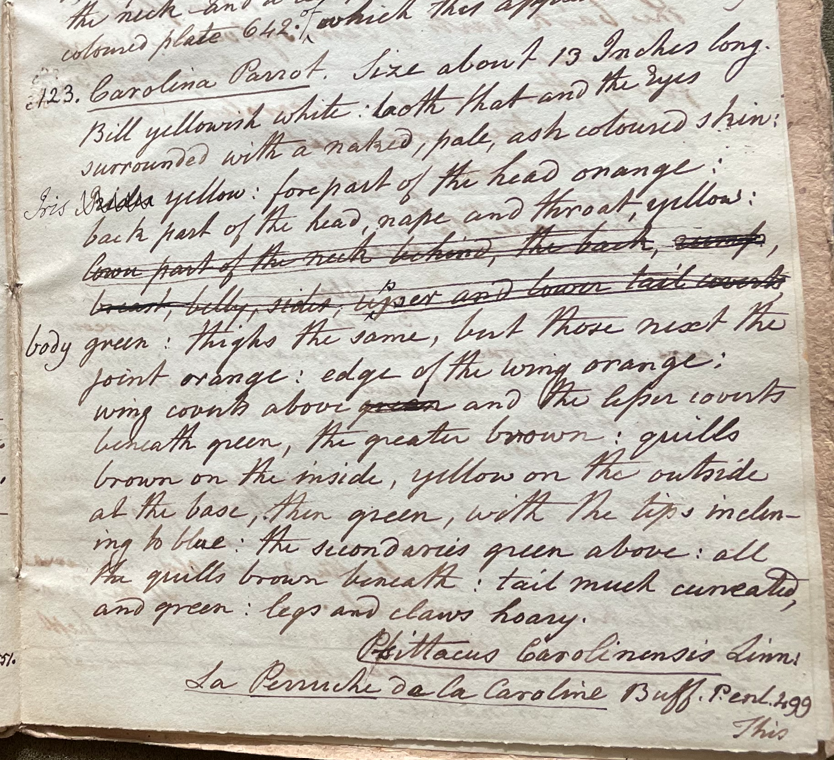 the neck and a
coloured plate 642: of which this
123. Carolina Parrot. Size about 13 Inches long.
Bill yellowish white: both that and the Eyes
surrounded with a naked, pale, ash coloured skin:
Iris yellow: forepart of the head orange:
back part of the head, nape and throat, yellow:
lower part of the neck behind, the back, rump,
breast, belly, sides, upper and lower tail coverts
body green: thighs the same, but those next the
joint orange: edge of the wing orange:
wing coverts above green and the lesser coverts
beneath green, the greater brown: quills
brown on the inside, yellow on the outside
at the base, then green, with the tips inclin-
ing to blue: the secondaries green above: all
the quills brown beneath: tail much cuneated,
and green: legs and claws hoary.
Psittacus Carolinensis Linn:
La Perruche de la Caroline Buff. P. enl. 499
This
51.